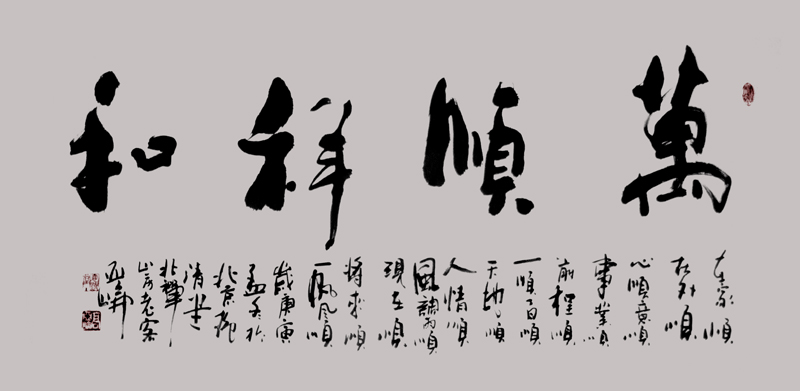 萬順祥和
在家順
在外順
心順意順
事業順
前程順
一順百順
天地順
人情順
風調雨順
現在順
將來順
一帆風順
歲庚寅
孟冬於
北京苑
清
老